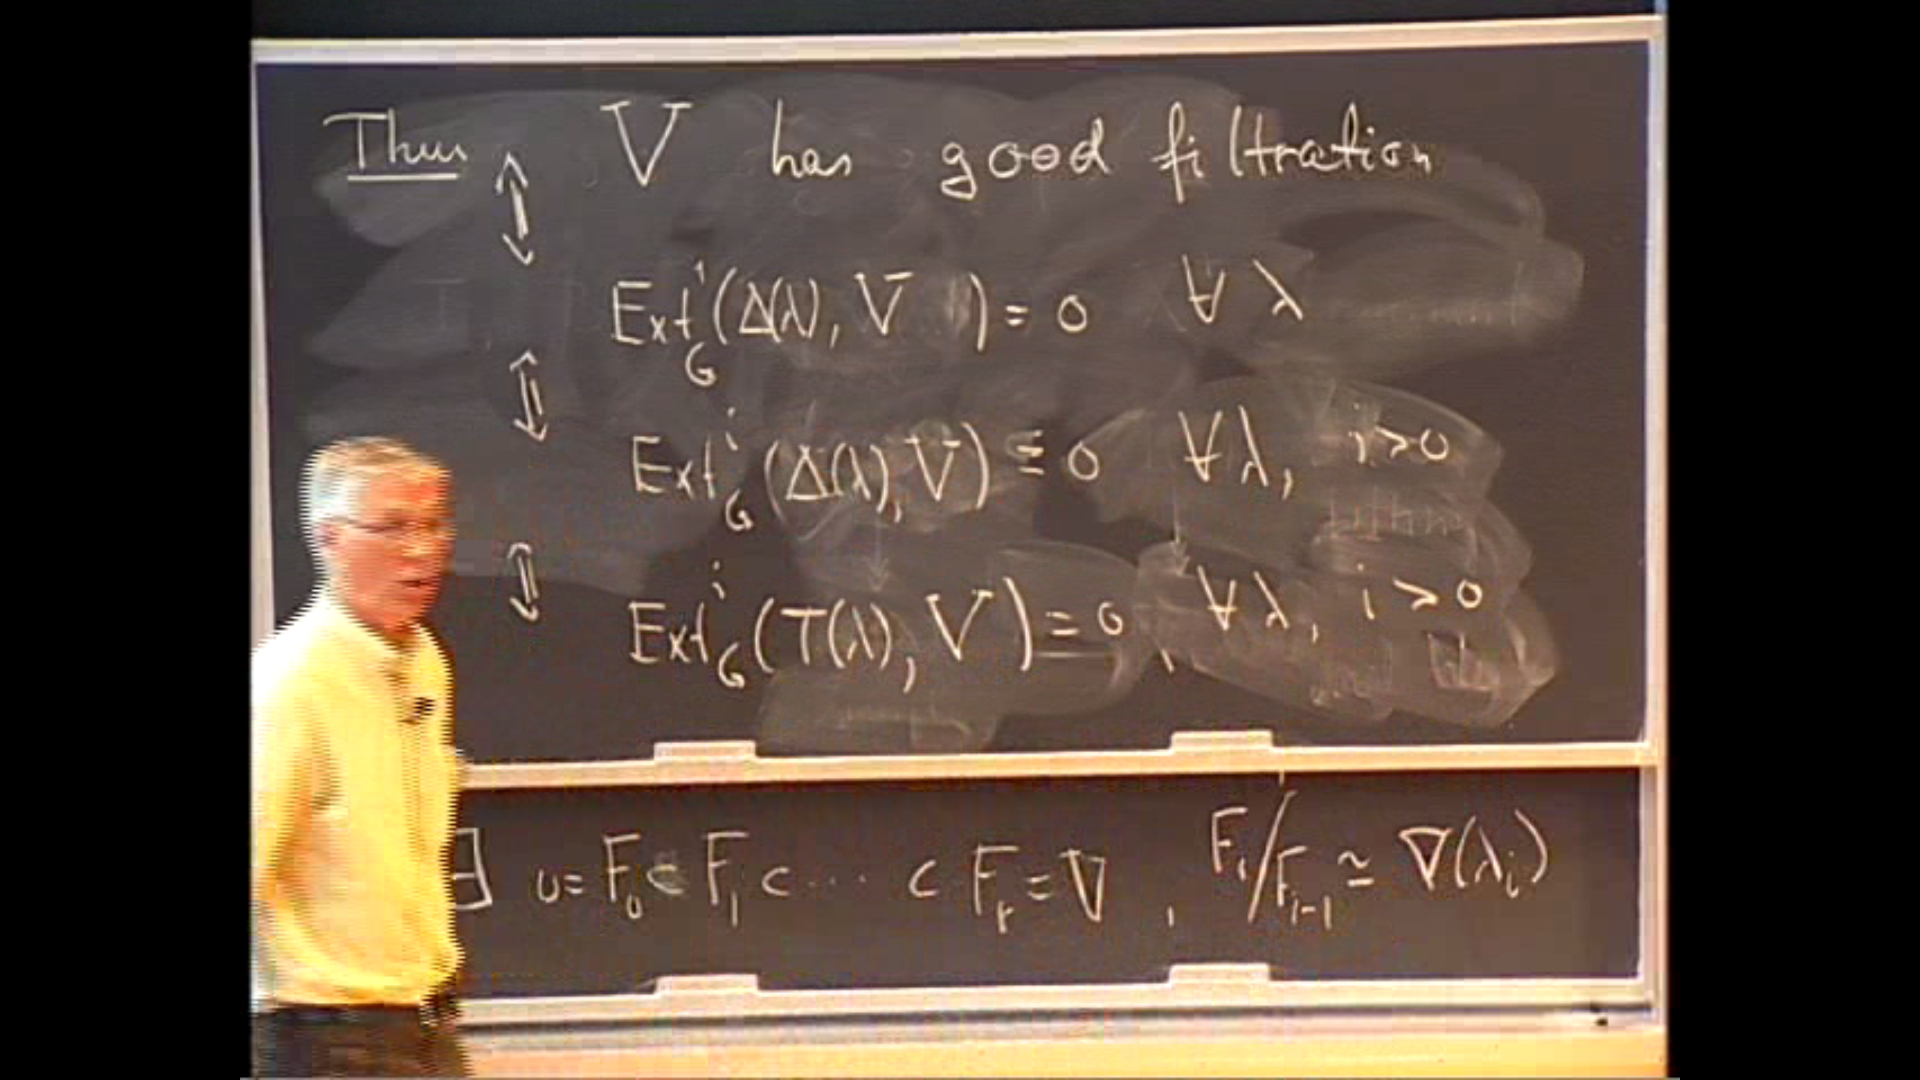 Thm V has good filtration
⇕
Ext¹_G(Δ(λ), V) = 0 ∀ λ
⇕
Extⁱ_G(Δ(λ), V) = 0 ∀ λ, i>0
⇕
Extⁱ_G(T(λ), V) = 0, ∀ λ, i > 0
∃ 0 = F_0 ⊂ F_1 ⊂ ··· ⊂ F_r = V, F_i/F_{i-1} ≃ ∇(λ_i)